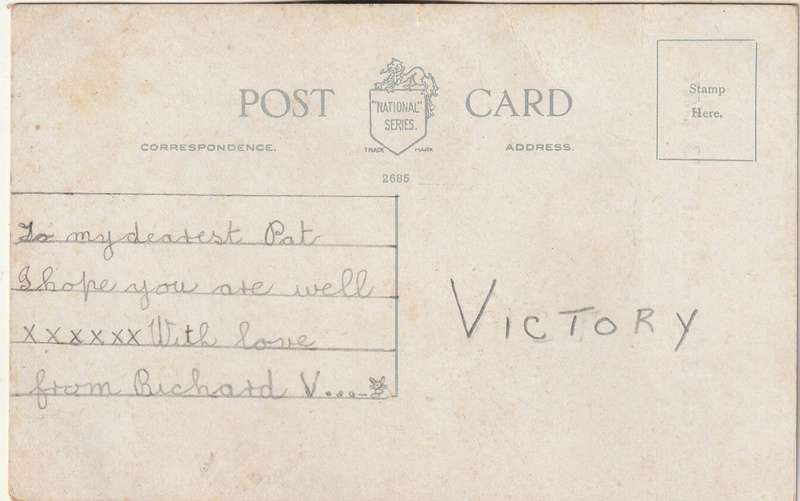 POST CARD
"NATIONAL"
SERIES.
TRADE MARK
CORRESPONDENCE.
ADDRESS.
2685
Stamp
Here.
To my dearest Pat
I hope you are well
x x x x x x With love
from Richard V...-
VICTORY